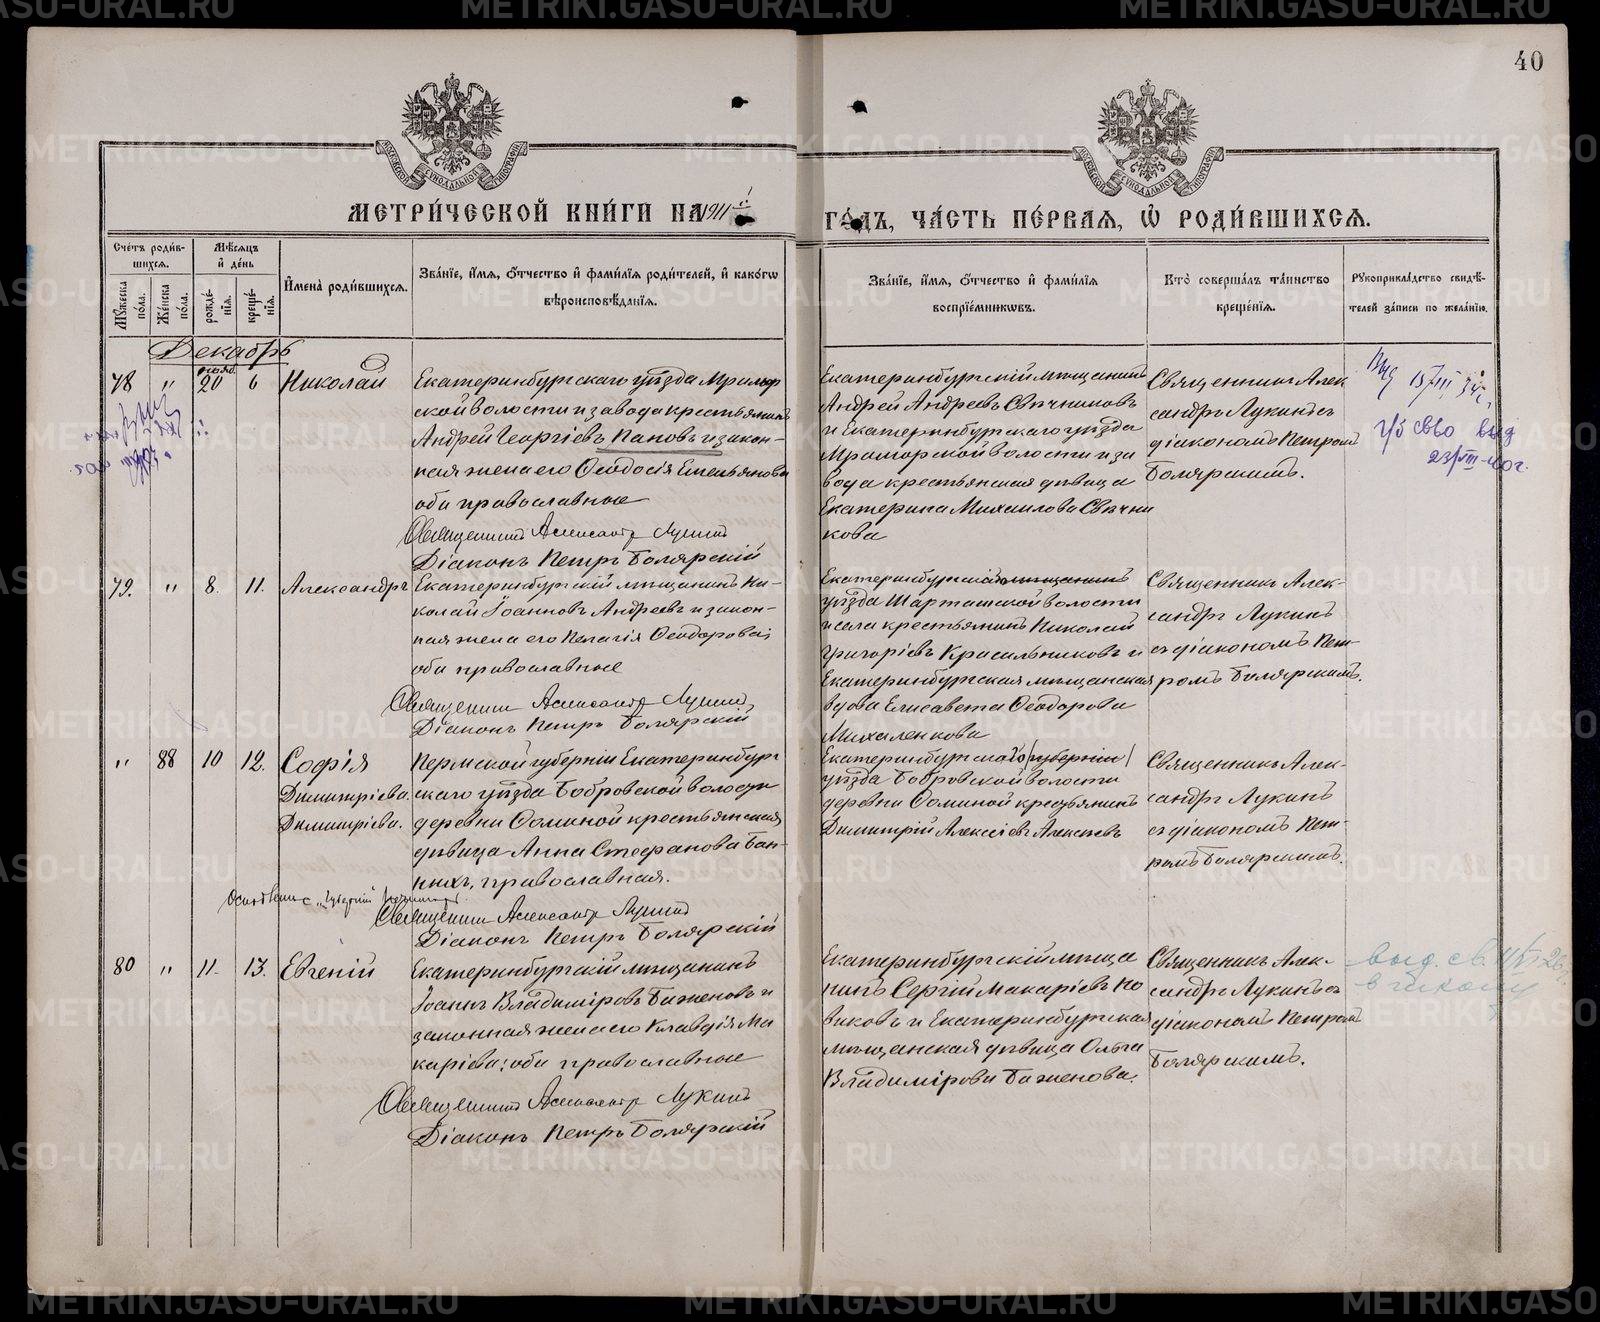 40
МОСКОВСКОЙ СУНОДАЛЬНОЙ ТИПОГРАФІИ
МОСКОВСКОЙ СУНОДАЛЬНОЙ ТИПОГРАФІИ
МЕТРИ́ЧЕСКОЙ КНИ́ГИ НА 1911 й
ГО́ДЪ, ЧА́СТЬ ПЕ́РВАЯ, Ѡ҆ РОДИ́ВШИХСЯ.
Сче́тъ роди́в-
шихся.
Мѣ́сяцъ
и҆ де́нь
Мꙋ́жеска по́ла.
Же́нска по́ла.
рожде́-
нїѧ.
креще́-
нїѧ.
И҆мена̀ роди́вшихся.
Зва́нїе, и҆́мѧ, ѻ҆́тчество и҆ фами́лїѧ роди́телей, и҆ како́гѡ
вѣроисповѣ́данїѧ.
Зва́нїе, и҆́мѧ, ѻ҆́тчество и҆ фами́лїѧ
воспрїе́мникѡвъ.
Кто̀ соверша́лъ та́инство
креще́нїѧ.
Рꙋкоприкла́дство свидѣ́-
телей за́писи по жела́нїю.
Декабрь
78 " 20 6 Николай
Екатеринбургскаго уѣзда Мрамор
ской волости и завода крестьянинъ
Андрей Георгіевъ Пановъ и закон-
ная жена его Ѳеодосія Емельянова
оба православные
Священникъ Александръ Лукинъ
Діаконъ Петръ Болярскій
Екатеринбургскій мѣщанинъ
Андрей Андреевъ Свѣчниковъ
и Екатеринбургскаго уѣзда
Мраморской волости и за
вода крестьянская дѣвица
Екатерина Михаилова Свѣчни
кова
Священникъ Алек
сандръ Лукинъ съ
діакономъ Петромъ
Болярскимъ.
79. " 8. 11. Александръ
Екатеринбургскій мѣщанинъ Ни-
колай Іоанновъ Андреевъ и закон-
ная жена его Пелагія Ѳеодорова;
оба православные
Священникъ Александръ Лукинъ
Діаконъ Петръ Болярскій
Екатеринбургскій мѣщанинъ
уѣзда Шарташской волости
и села крестьянинъ Николай
Григоріевъ Красильниковъ и
Екатеринбургская мѣщанская
вдова Елисавета Ѳеодорова
Михаленкова
Священникъ Алек-
сандръ Лукинъ
съ діакономъ Пет-
ромъ Болярскимъ.
" 88 10 12. Софія
Димитріева.
Димитріева.
Пермской губерніи Екатеринбург
скаго уѣзда Бобровской волости
деревни Ѳоминой крестьянская
дѣвица Анна Стефанова Бан-
ныхъ, православная.
Священникъ Александръ Лукинъ
Діаконъ Петръ Болярскій
Екатеринбургскаго /губерніи/
уѣзда Бобровской волости
деревни Ѳоминой крестьянинъ
Димитрій Алексіевъ Алексѣевъ
Священникъ Алек-
сандръ Лукинъ
съ діакономъ Пет-
ромъ Болярскимъ.
80 " 11. 13. Евгеній
Екатеринбургскій мѣщанинъ
Іоаннъ Владиміровъ Баженовъ и
законная жена его Клавдія Ма
каріева; оба православные
Священникъ Александръ Лукинъ
Діаконъ Петръ Болярскій
Екатеринбургскій мѣща
нинъ Сергій Макаріевъ Но
виковъ и Екатеринбургская
мѣщанская дѣвица Ольга
Владимірова Баженова.
Священникъ Алек-
сандръ Лукинъ съ
діакономъ Петромъ
Болярскимъ.
METRIKI.GASO-URAL.RU